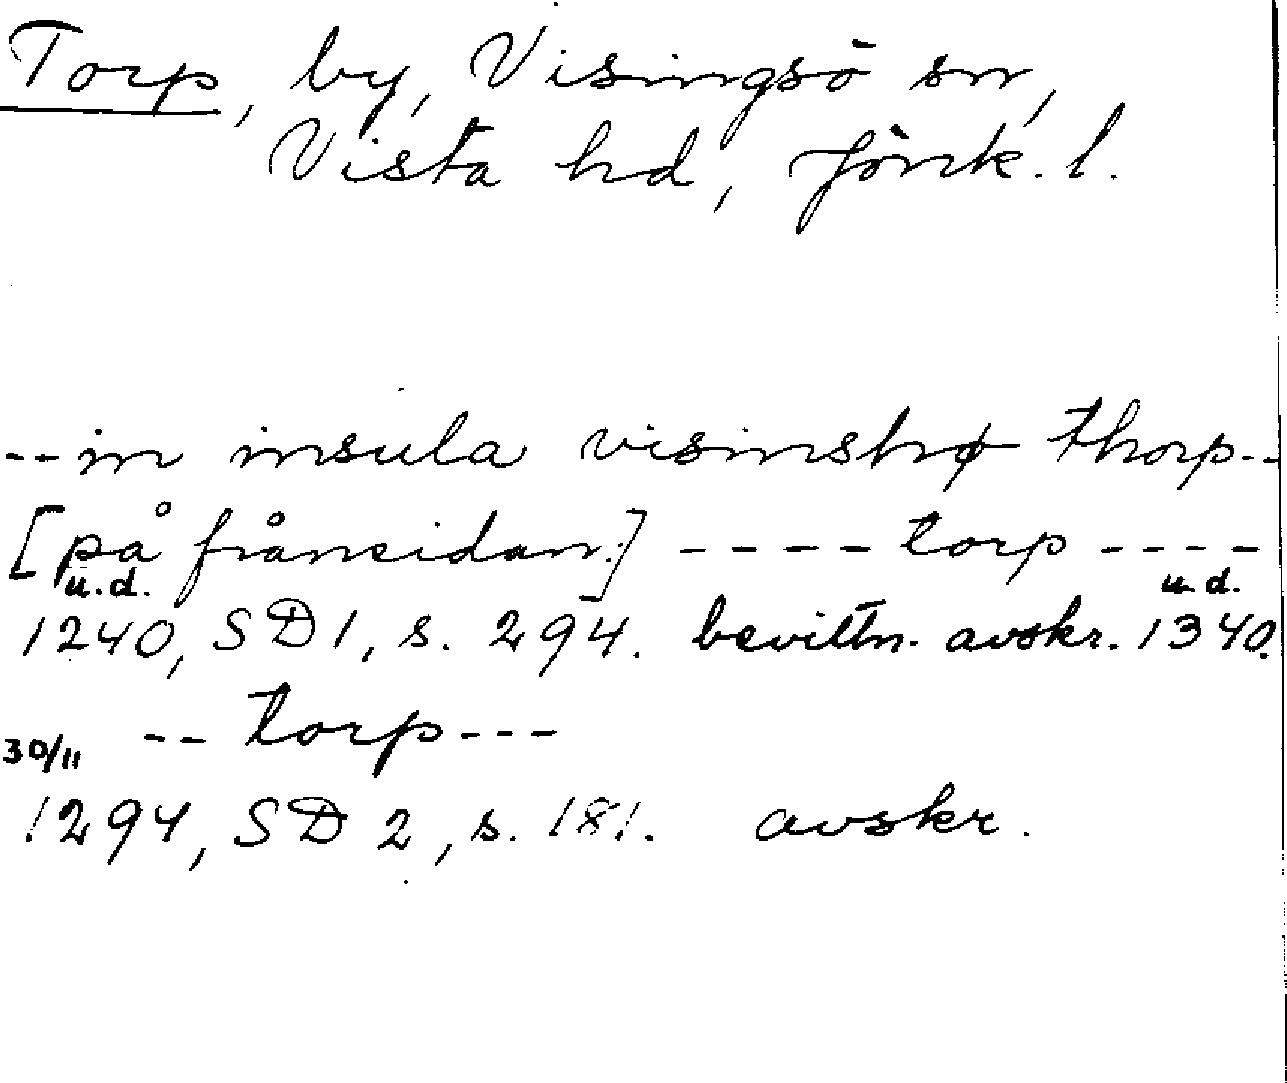 Torp, by, Visingsö sn,
Vista hd, Jönk. l.
--in insula visinshø thorp--
[på frånsidan:] ---- torp ----
u.d. u.d.
1240, SD 1, s. 294. bevittn. avskr. 1340.
30/11 -- torp ---
1294, SD 2, s. 181. avskr.